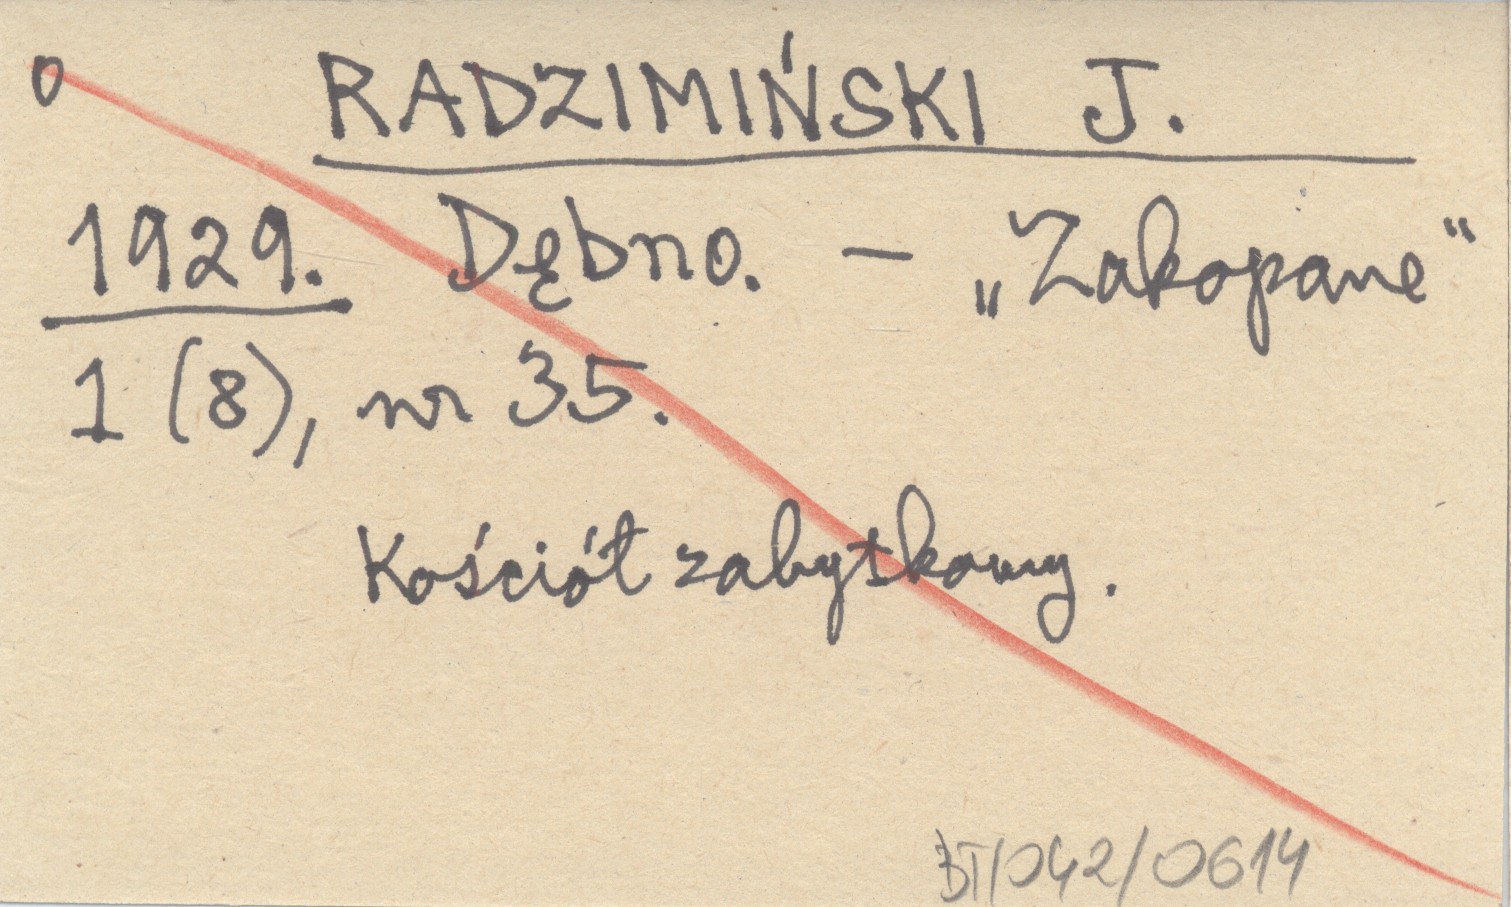 0 RADZIMIŃSKI J.
1929. Dębno. – „Zakopane“
1 (8), nr 35.
Kościół zabytkowy.
BT/042/0614